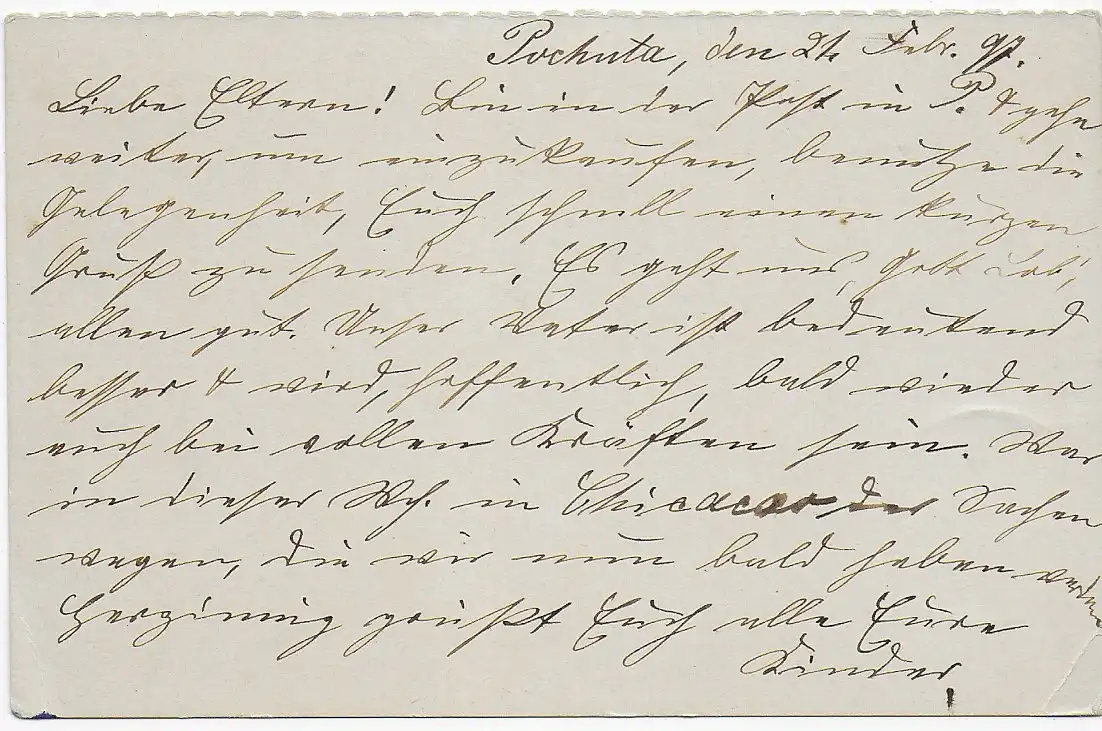 Pochuta, den 21. Febr. 97.
Liebe Eltern! Bin in der Post in P. & gehe
weiter, um einzukaufen, benutze die
Gelegenheit, Euch schnell einen kurzen
Gruß zu senden. Es geht uns, Gott Lob,
allen gut. Unser Vater ist bedeutend
besser & wird, hoffentlich, bald wieder
auch bei vollen Kräften sein. War
in dieser Wch. in Chicacao der Sachen
wegen, die wir nun bald haben werden.
Herzinnig grüßt Euch alle Eure
Kinder